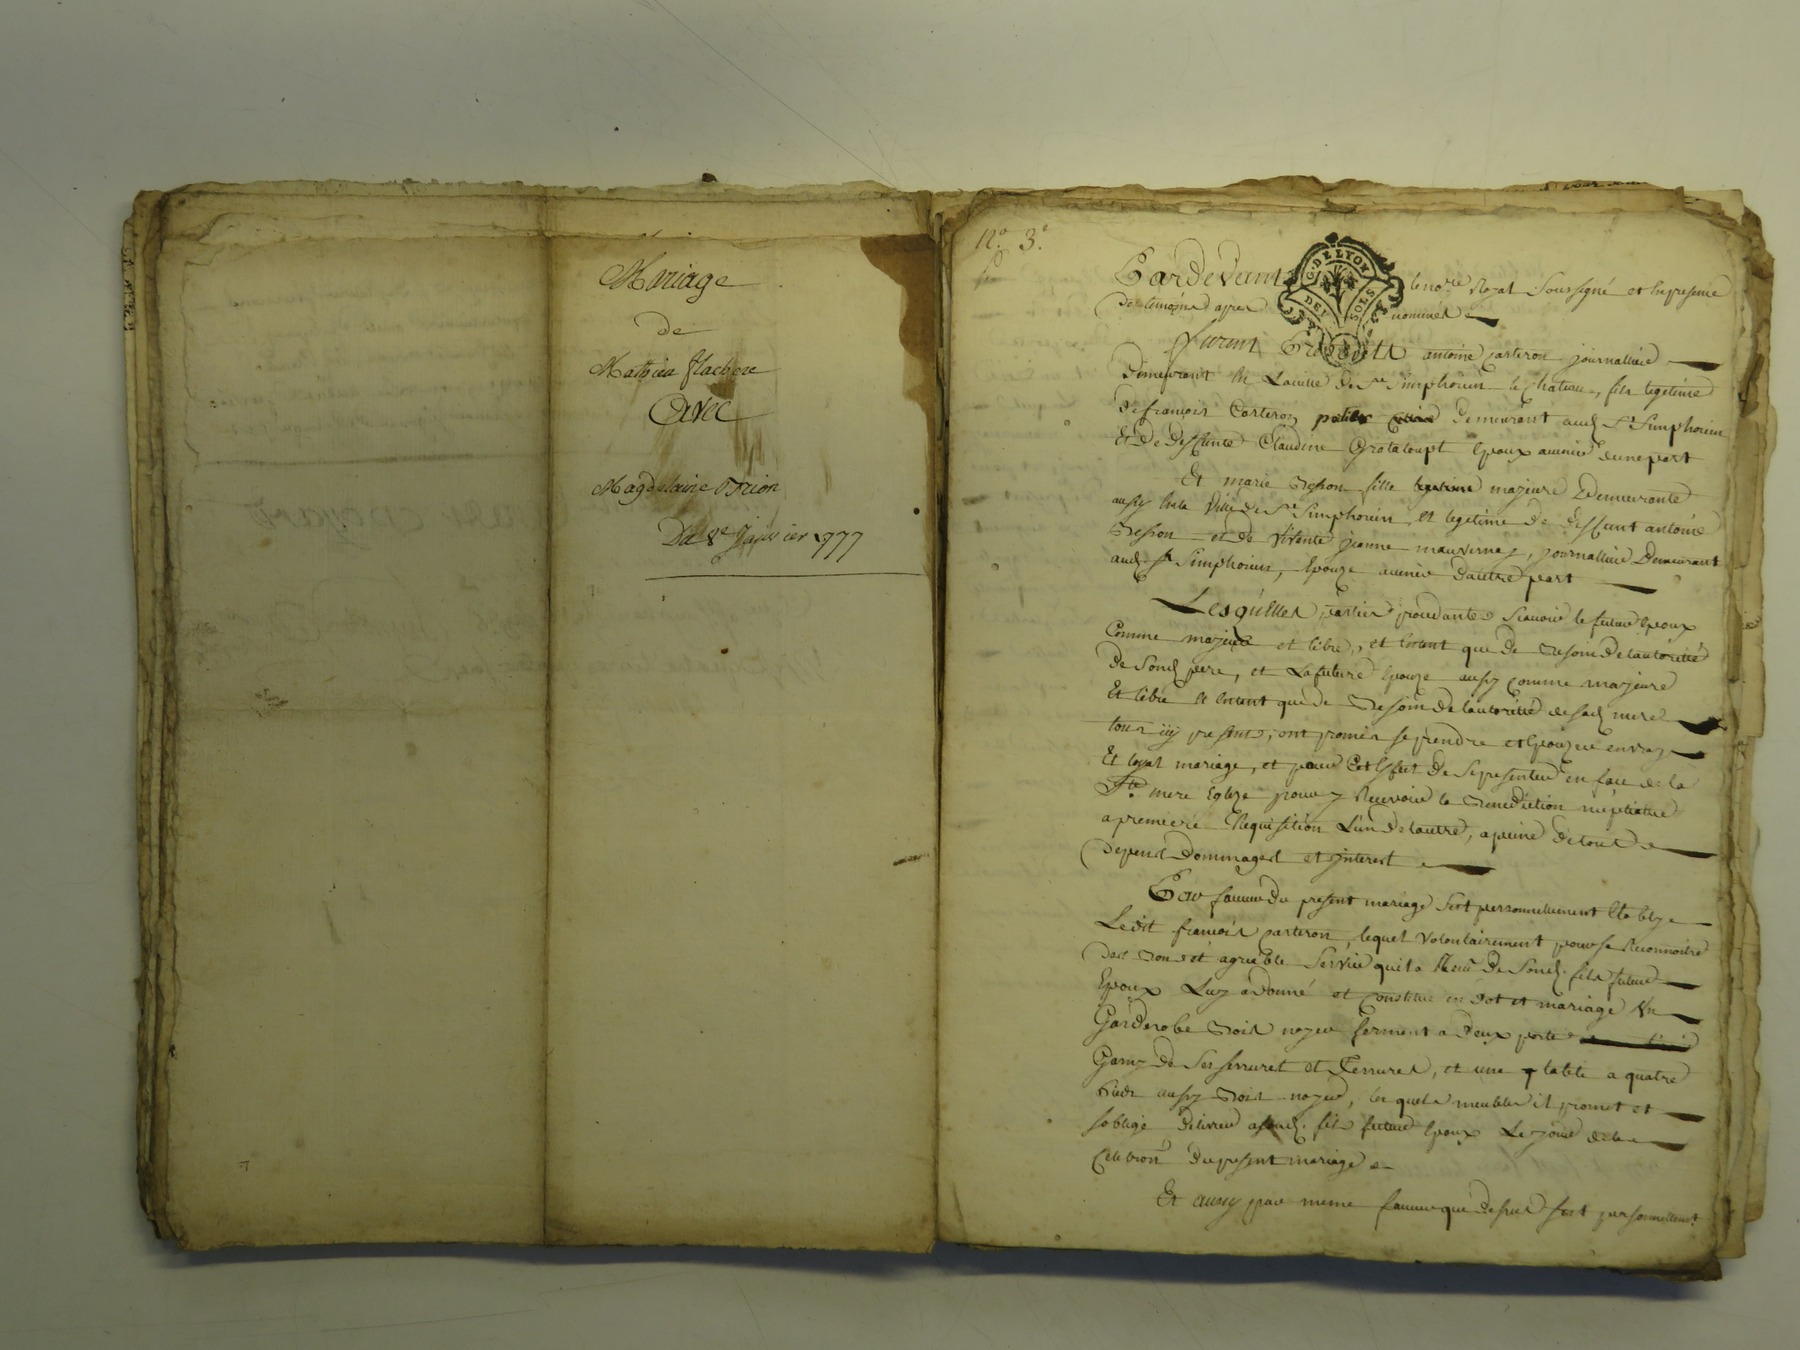 Mariage
de
Mathieu flachere
Avec
Magdelaine Orion
Du 8e Janvier 1777
No. 3e
Pardevant le nore Royal Soussigné et En presence
Des temoins apres nommés
G. DE LYON
DEV SOLS
furent Presents antoine carteron journallier
Demeurant En Laville de St Simphorien le chateau, fils legitime
De françois Carteron demeurant aud St Simphorien
Et De Deffunte Claudine Grataloupt Epoux avenir dune part
Et marie Besson fille majeure Demeurante
aussy En la Ville de St Simphorien, et legitime de deffunt antoine
Besson et de Vivente jeanne mauvernay, journalliere Demeurant
aud St Simphorien, Epouze avenir d'autre part
Lesquelles parties procedantes Scavoir le futur Epoux
Comme majeur et libre, et Entent que de Besoin De lautoritté
de Sond pere, et La future Epouze aussy comme majeure
Et libre et Entent que de Besoin de lautoritté de sad mere
tous icy presents, ont promis se prendre et Epouzer en vray
Et loyal mariage, et pour Cet Effet De se presenter en face de la
Ste. mere Eglize pour y Recevoir la Benediction nuptialle
a premiere Requisition L'un De lautre, a peine de tous
Depens Dommages et jnterest
En faveur Du present mariage s'est personnellement Etably
Ledit françois carteron, lequel Volontairement pour se Reconnoitre
des Bons et agreable Service quil a Reçu De Sond. fils futur
Epoux Luy a Donné et Constitue en dot et mariage Un
Garderobe Bois noyer ferment a Deux porte
Garny de Ses serrures et ferrures, et une table a quatre
Pieds aussy Bois noyer, les quels meubles il promet et
soblige delivrer a sond. fils futur Epoux Le jour de la
Celebron Du present mariage
Et aussy par meme faveur que dessus s'est personnellemt